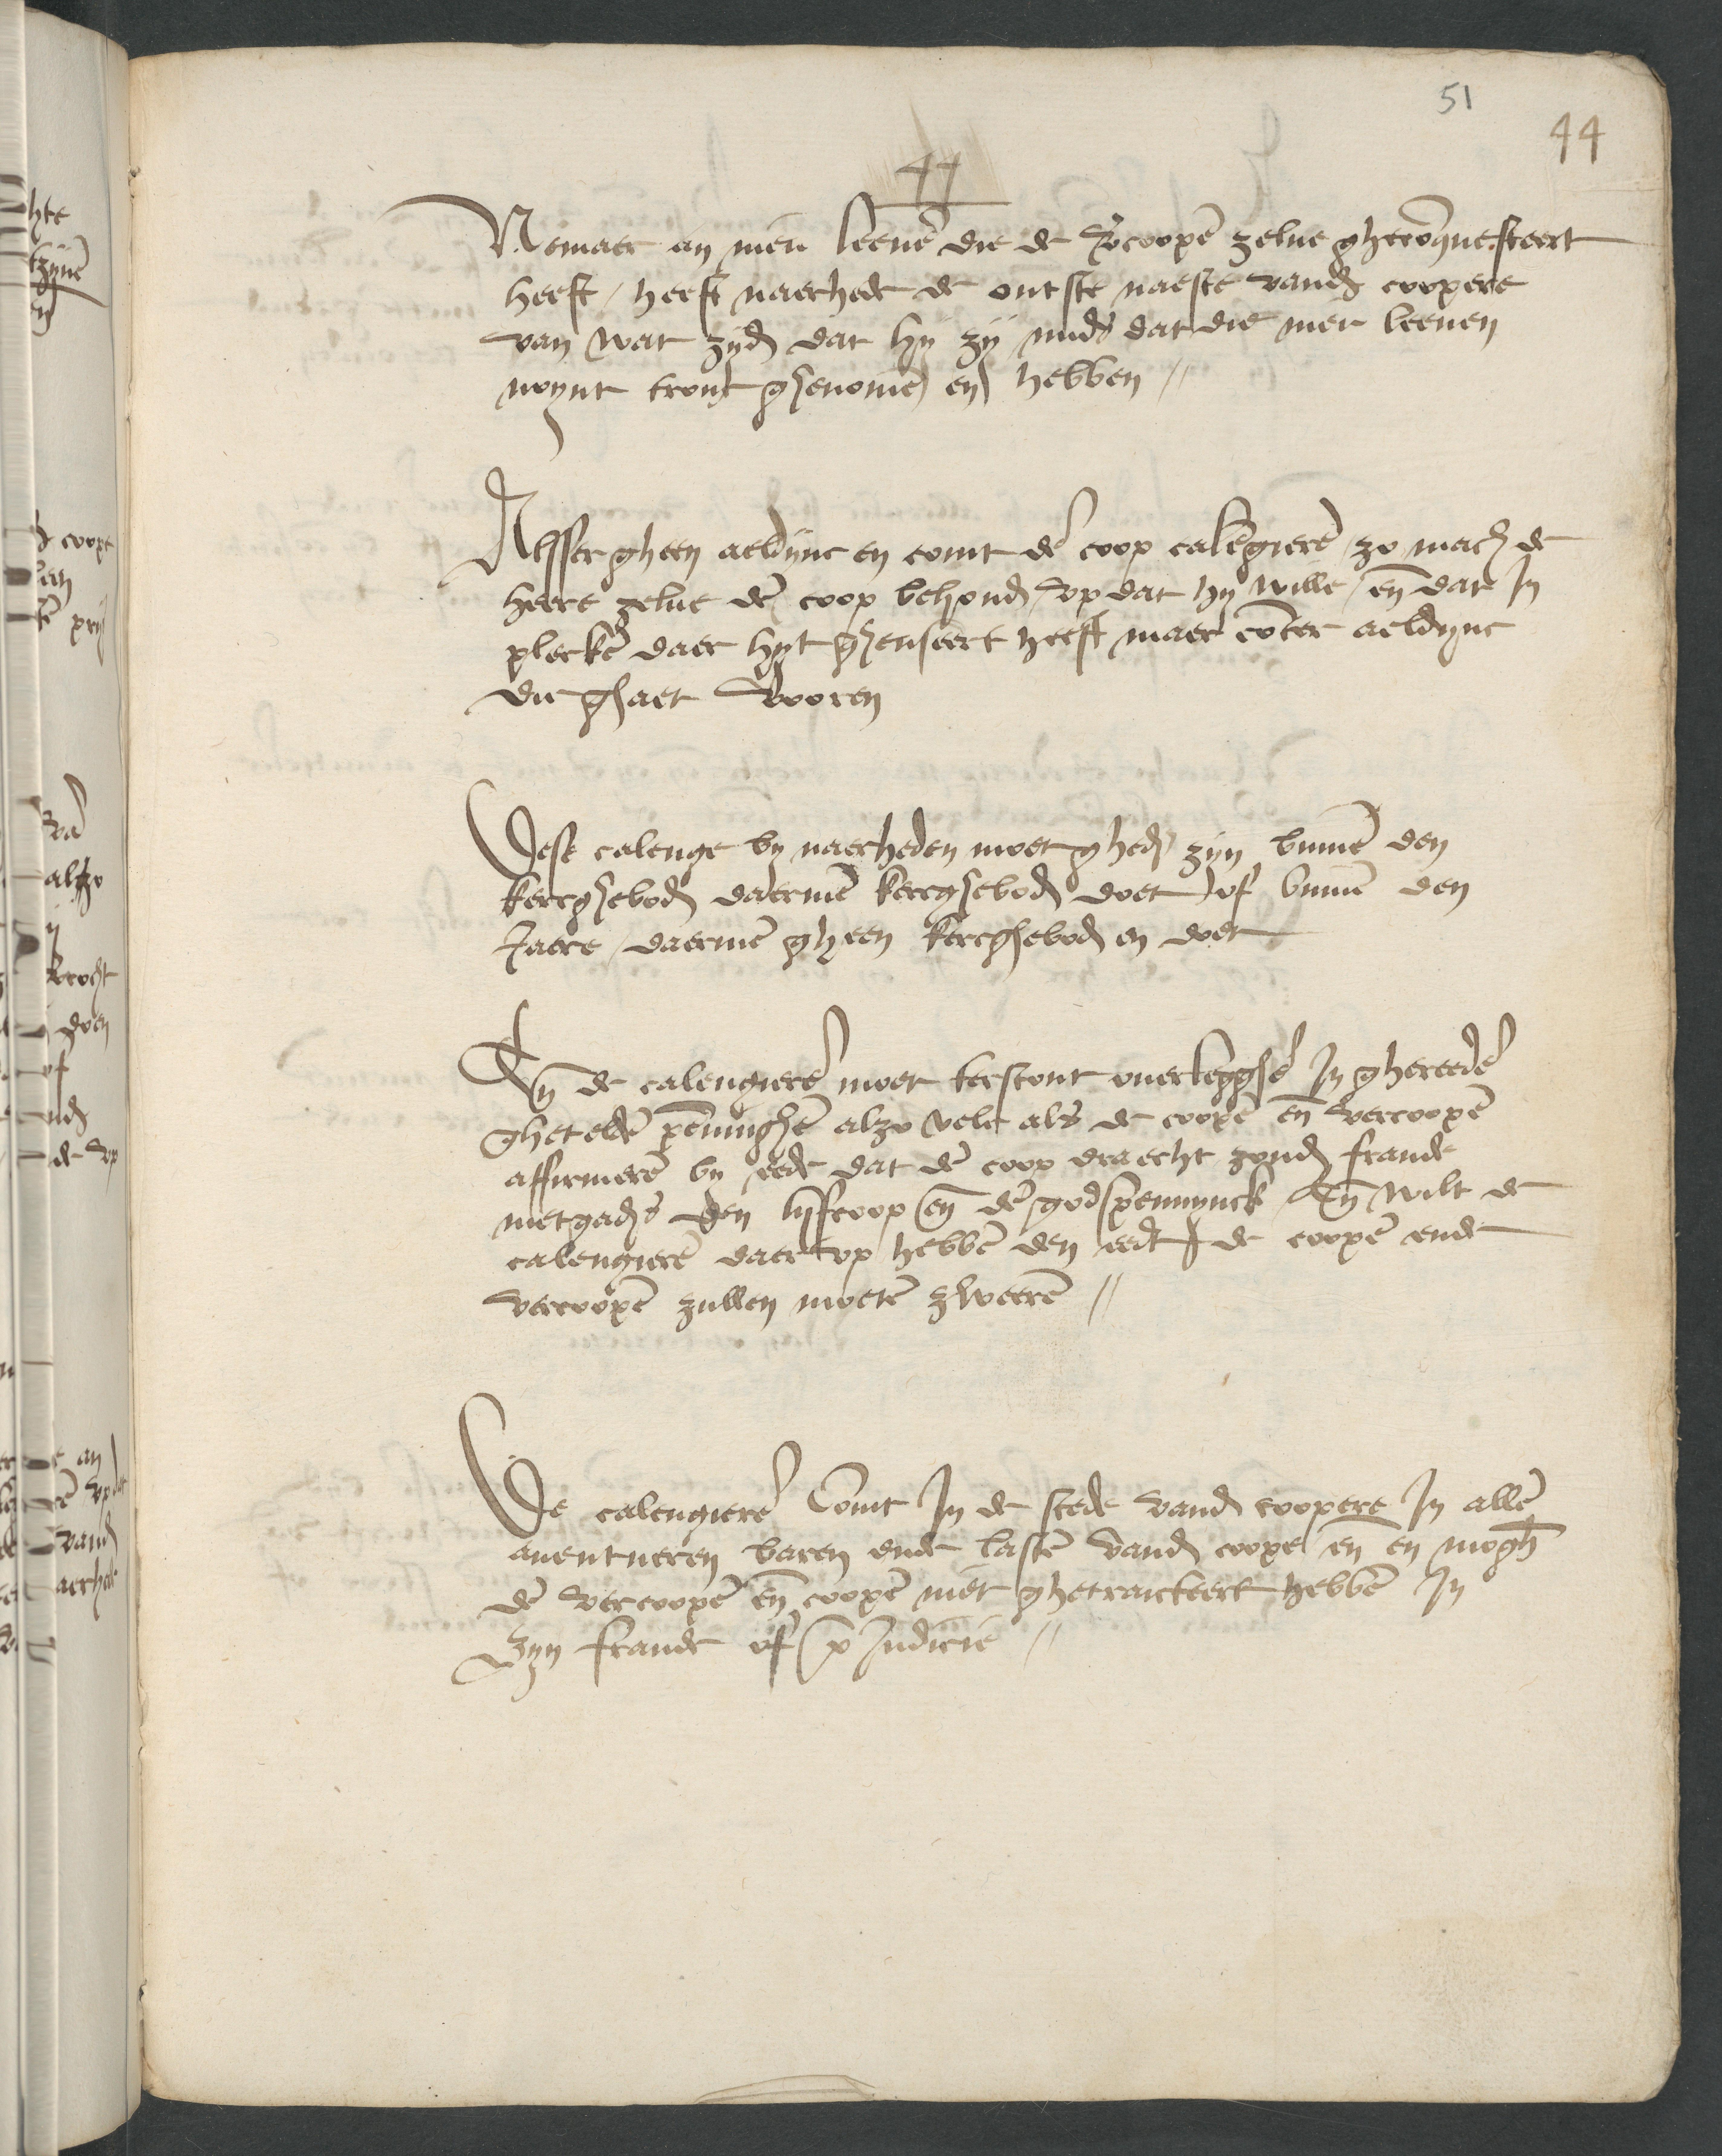 51
44
44
Nemaer an nieu leene die de vcoope zelue gheconquesteert
heeft / heeft naerhede de outste naeste vand coopere
van wat zyd dat hy zy mids dat die met leenen
noynt tronk ghenome en hebben //
Alsser gheen aeldync en comt de coop calegiere / zo mach de
heere zelue de coop behoud / vp dat hy wille / en dat In
plecke daer hyt gheuseert heeft maer conter aeldync
die ghaet vooren
Dese calenge by naerheden moet ghed zyn binne den
kercghebod daerme kercghebod doet of binne den
Jaere / daerme gheen kercghebod en doet
En de calengiere moet terstont ouerlegghe In ghereede
ghetelde penninghe alzo vele als de coope en vercoope
affirmere by eede dat de coop draecht zond fraude
metgads den lyfcoop en de godspennynck En wilt de
calengiere daer vp hebbe den eedt de coope ende
vercoope zullen moete zweere //
De calengiere Comt In de stede vand coopere In alle
auentueren baren ende laste vand coope en en mogh
de vercoope en coope niet ghetraicteert hebbe In
Zyn fraude of p Iudicie //